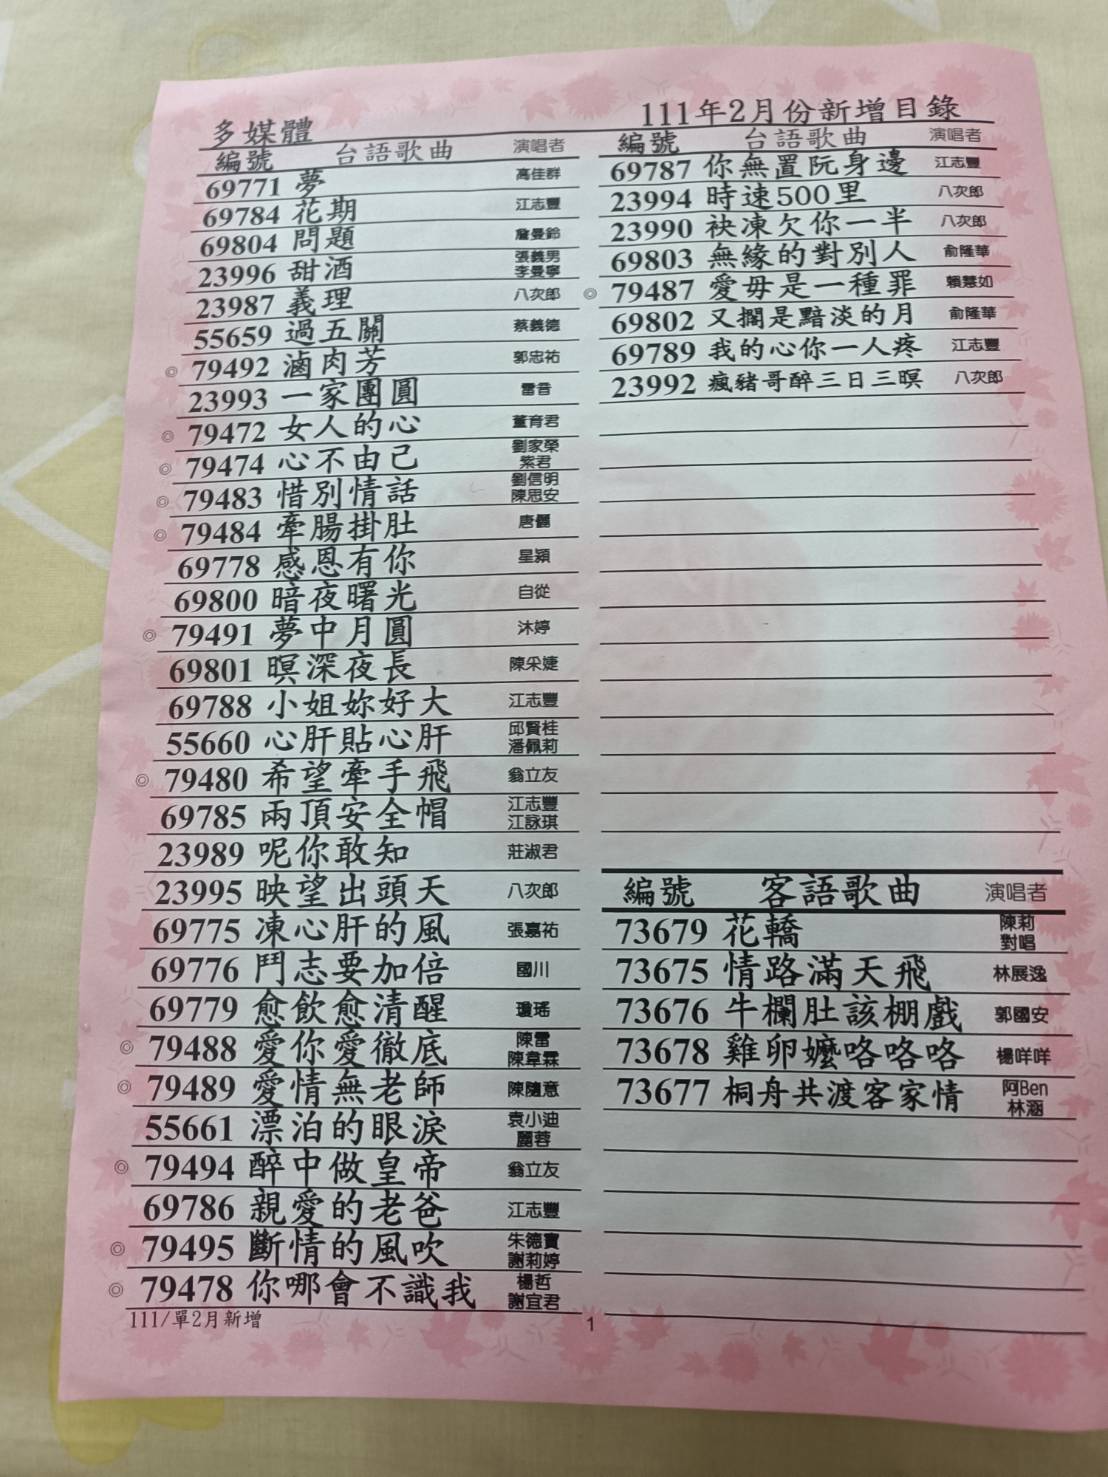 多媒體
111年2月份新增目錄
編號 台語歌曲 演唱者
69771 夢 高佳群
69784 花期 江志豐
69804 問題 詹曼鈴
23996 甜酒 張義男 李曼寧
23987 義理 八次郎
55659 過五關 蔡義德
◎ 79492 滷肉芳 郭忠祐
23993 一家團圓 雷音
◎ 79472 女人的心 董育君
◎ 79474 心不由己 劉家榮 紫君
◎ 79483 惜別情話 劉信明 陳思安
◎ 79484 牽腸掛肚 唐儷
69778 感恩有你 星潁
69800 暗夜曙光 自從
◎ 79491 夢中月圓 沐婷
69801 暝深夜長 陳采婕
69788 小姐妳好大 江志豐
55660 心肝貼心肝 邱賢桂 潘佩莉
◎ 79480 希望牽手飛 翁立友
69785 兩頂安全帽 江志豐 江詠琪
23989 呢你敢知 莊淑君
23995 映望出頭天 八次郎
69775 凍心肝的風 張嘉祐
69776 鬥志要加倍 國川
69779 愈飲愈清醒 瓊瑤
◎ 79488 愛你愛徹底 陳雷 陳韋霖
◎ 79489 愛情無老師 陳隨意
55661 漂泊的眼淚 袁小迪 麗蓉
◎ 79494 醉中做皇帝 翁立友
69786 親愛的老爸 江志豐
◎ 79495 斷情的風吹 朱德寶 謝莉婷
◎ 79478 你哪會不識我 楊哲 謝宜君
111/單2月新增
編號 台語歌曲 演唱者
69787 你無置阮身邊 江志豐
23994 時速500里 八次郎
23990 袂凍欠你一半 八次郎
69803 無緣的對別人 俞隆華
◎ 79487 愛毋是一種罪 賴慧如
69802 又擱是黯淡的月 俞隆華
69789 我的心你一人疼 江志豐
23992 瘋豬哥醉三日三暝 八次郎
編號 客語歌曲 演唱者
73679 花轎 陳莉 對唱
73675 情路滿天飛 林展逸
73676 牛欄肚該棚戲 郭國安
73678 雞卵嬤咯咯咯 楊咩咩
73677 桐舟共渡客家情 阿Ben 林涵
1